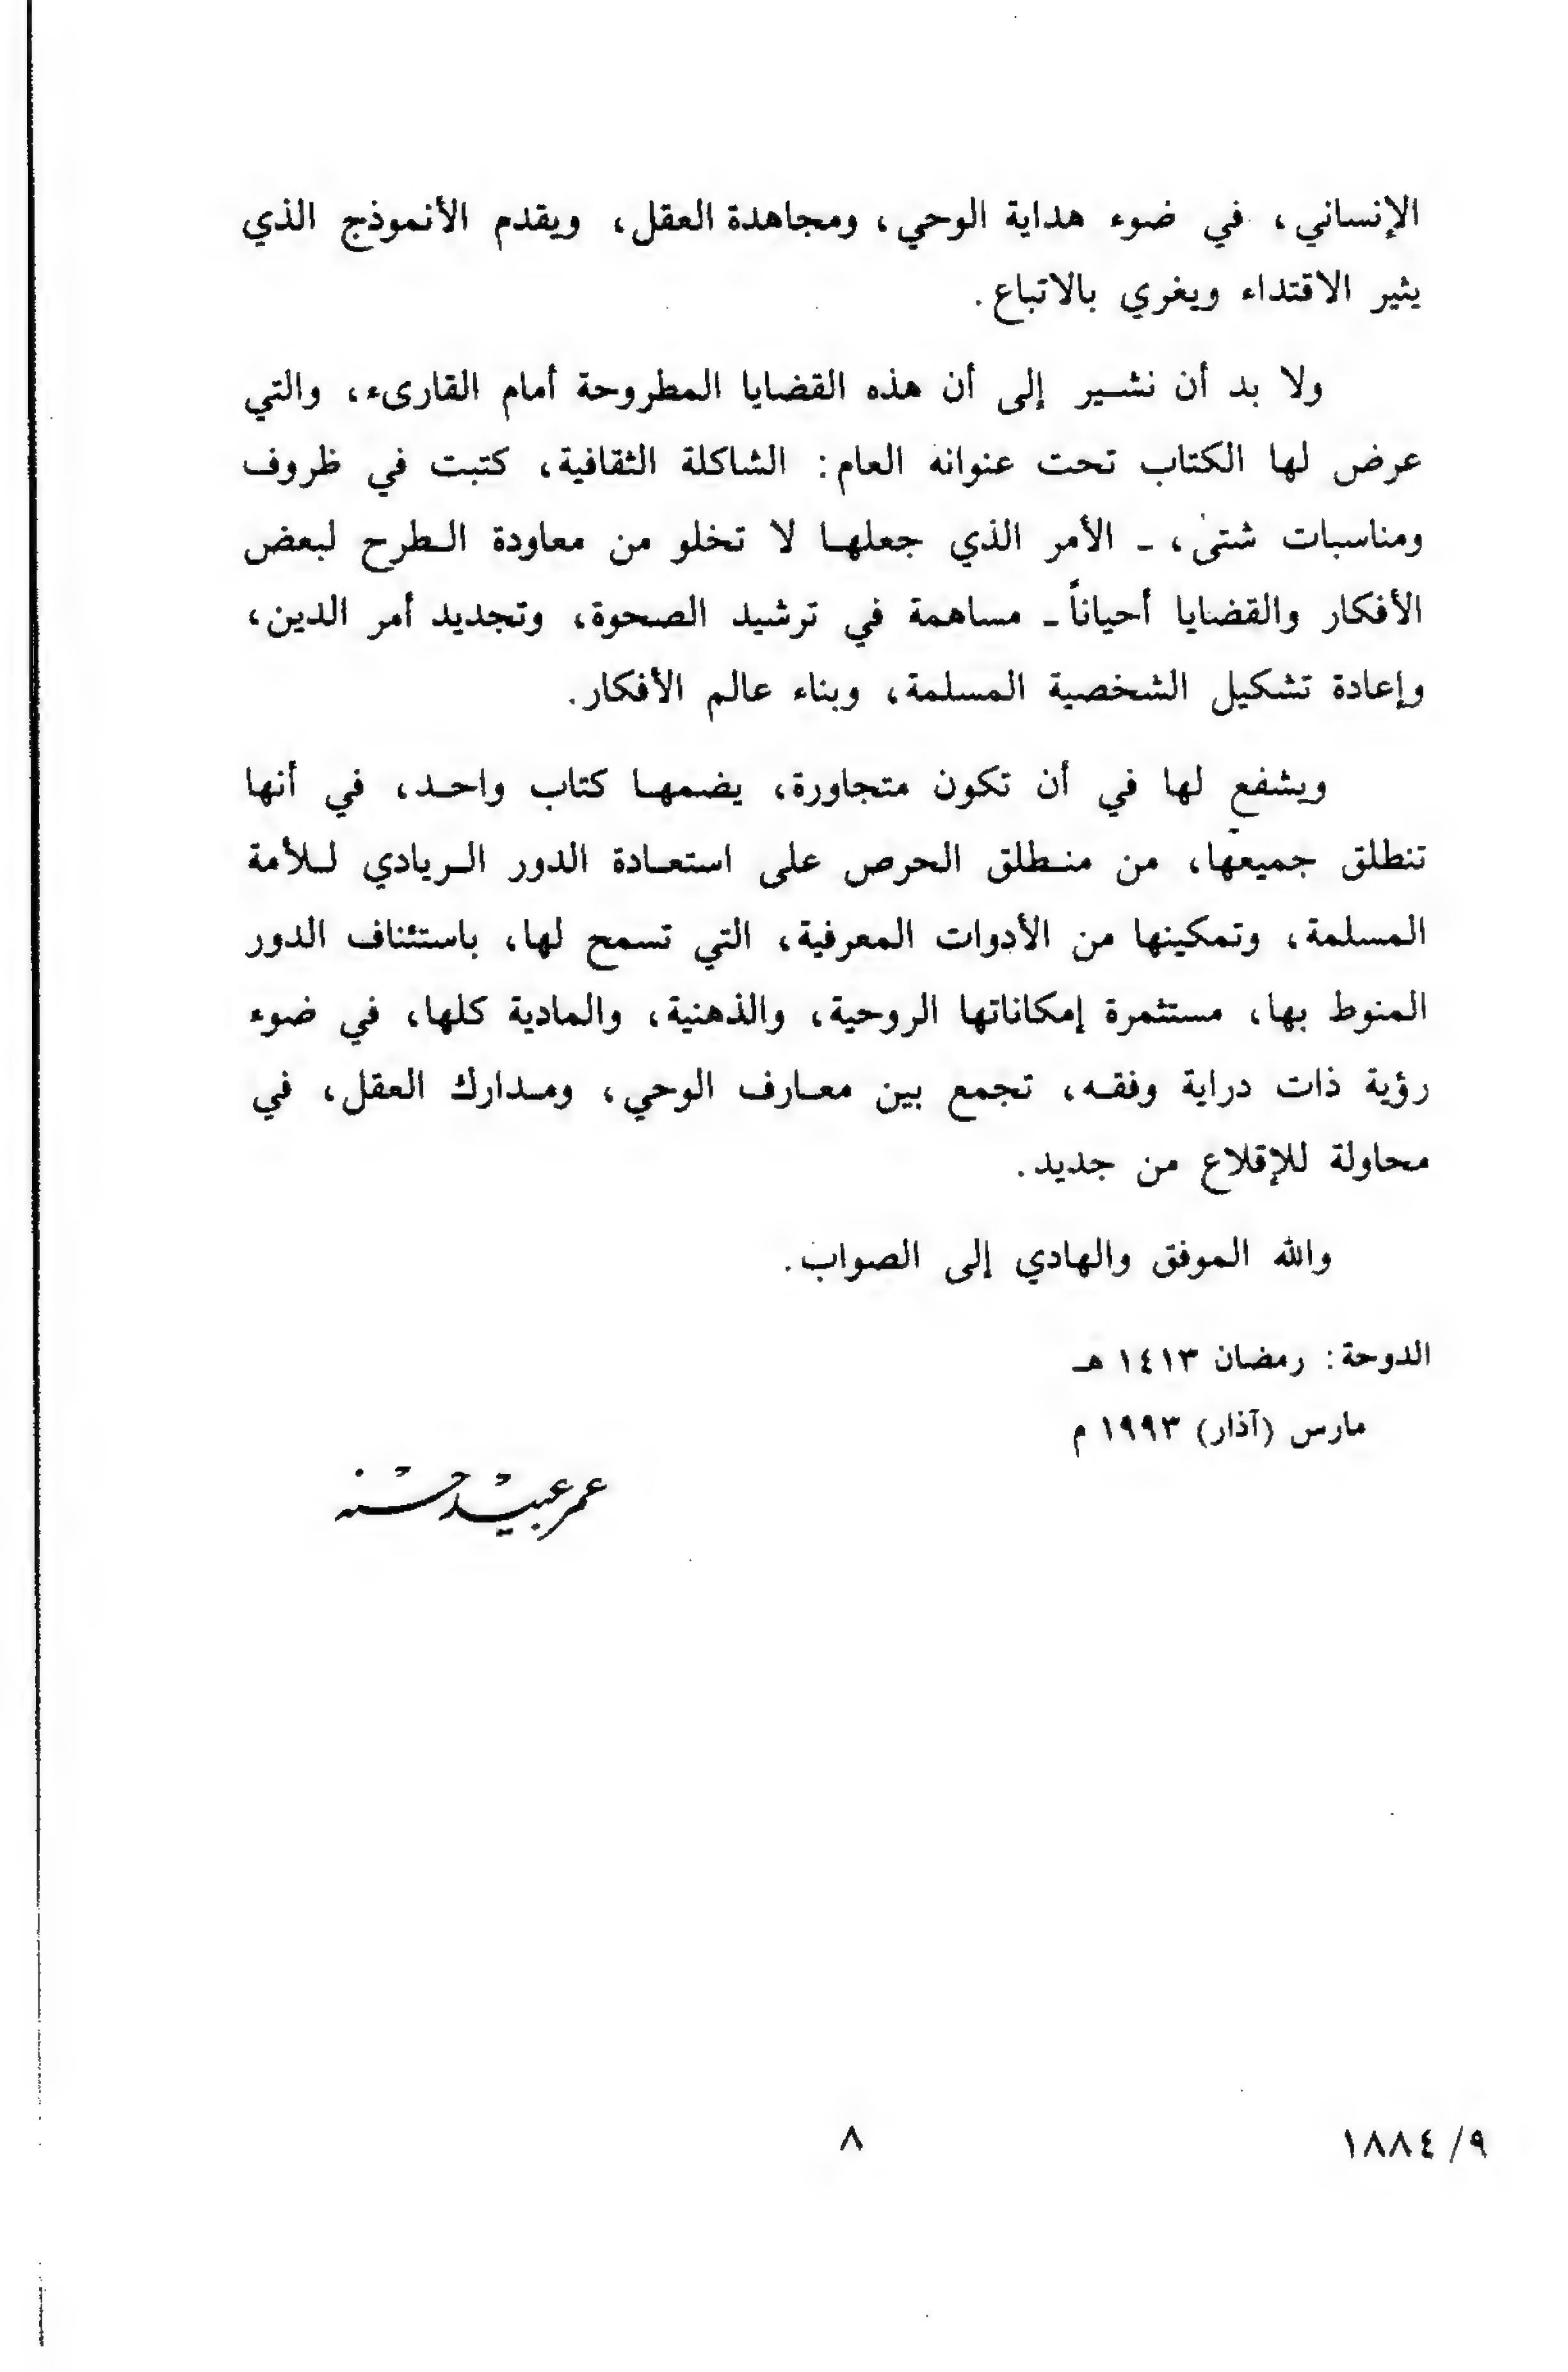 الإنساني، في ضوء هداية الوحي، ومجاهدة العقل، ويقدم الأنموذج الذي
يثير الاقتداء ويغري بالاتباع.
ولا بد أن نشير إلى أن هذه القضايا المطروحة أمام القارىء، والتي
عرض لها الكتاب تحت عنوانه العام: الشاكلة الثقافية، كتبت في ظروف
ومناسبات شتى، ـ الأمر الذي جعلها لا تخلو من معاودة الطرح لبعض
الأفكار والقضايا أحياناً ـ مساهمة في ترشيد الصحوة، وتجديد أمر الدين،
وإعادة تشكيل الشخصية المسلمة، وبناء عالم الأفكار.
ويشفع لها في أن تكون متجاورة، يضمها كتاب واحد، في أنها
تنطلق جميعها، من منطلق الحرص على استعادة الدور الريادي للأمة
المسلمة، وتمكينها من الأدوات المعرفية، التي تسمح لها، باستئناف الدور
المنوط بها، مستثمرة إمكاناتها الروحية، والذهنية، والمادية كلها، في ضوء
رؤية ذات دراية وفقه، تجمع بين معارف الوحي، ومدارك العقل، في
محاولة للإقلاع من جديد.
والله الموفق والهادي إلى الصواب.
الدوحة: رمضان ١٤١٣ هـ
مارس (آذار) ١٩٩٣ م
عمر عبيد حسنه
٨
١٨٨٤/٩